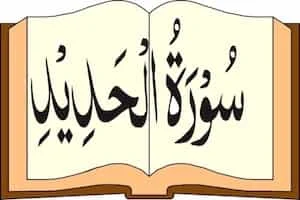 سُوْرَةُ الْحَدِيْدِ